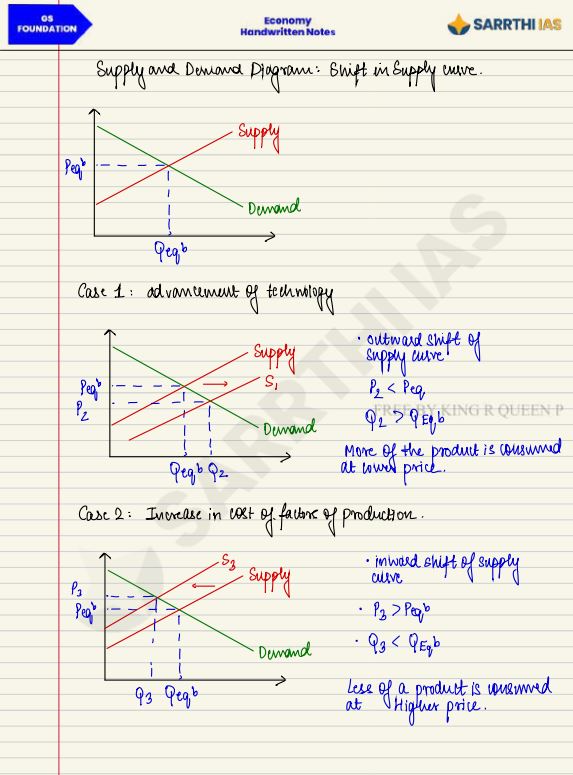 GS
FOUNDATION
Economy
Handwritten Notes
SARRTHI IAS
Supply and Demand Diagram: Shift in Supply curve.
Supply
Peqb
Demand
Qeqb
Case 1: advancement of technology
Supply
S1
Peqb
P2
Demand
Qeqb Q2
• outward shift of
supply curve
P2 < Peq
FREE BY KING R QUEEN P
Q2 > QEqb
More of the product is consumed
at lower price.
Case 2: Increase in cost of factors of production.
S3
Supply
P3
Peqb
Demand
Q3 Qeqb
• inward shift of supply
curve
• P3 > Peqb
• Q3 < QEqb
Less of a product is consumed
at Higher price.
SARRTHI IAS